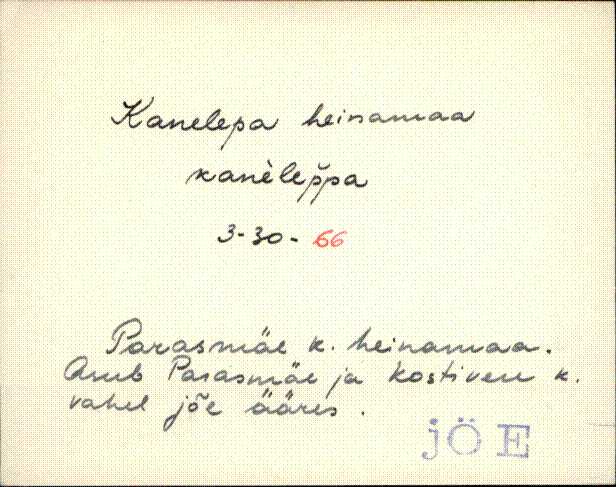 Kanelepa heinamaa
kanèlep̆pa
3-30-66
Parasmäe k. heinamaa.
Asub Parasmäe ja Kostivere k.
vahel jõe ääres.
JÕE